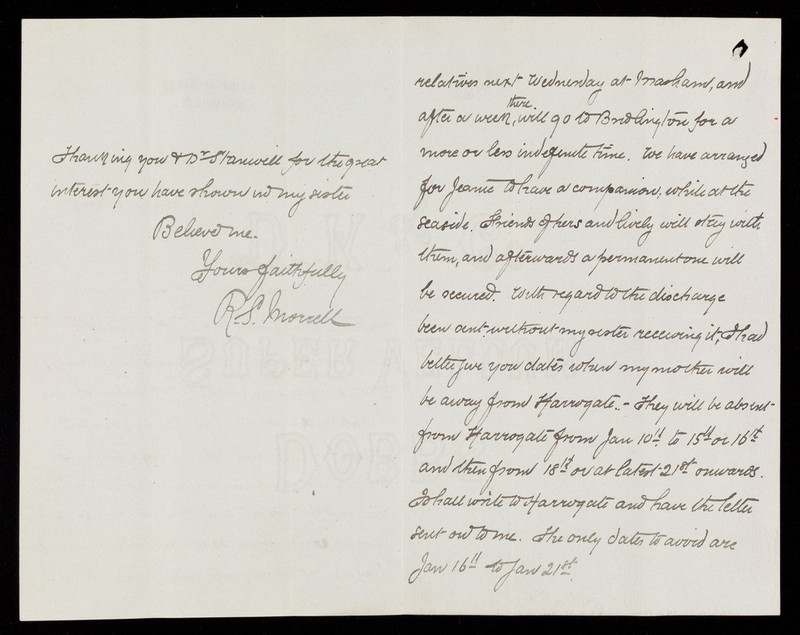 relatives next Wednesday at Masham, and
there
after a week, will go to Bridlington for a
more or less indefinite time. We have arranged
for Jeanie to have a companion, while at the
seaside. Friends of hers and lively will stay with
them, and afterwards a permanent one will
be secured. With regard to the discharge
been sent without my sister receiving it, I had
better give you dates when my mother will
be away from Harrogate. - They will be absent
from Harrogate from Jan 10th to 15th or 16th
and then from 18th or at latest 21st onwards.
I shall write to Harrogate and have the letter
sent on to me. The only dates to avoid are
Jan 16th to Jan 21st.
Thanking you & Dr Stanwell for the great
interest you have shown in my sister
Believe me.
Yours faithfully
R. S. Morrell